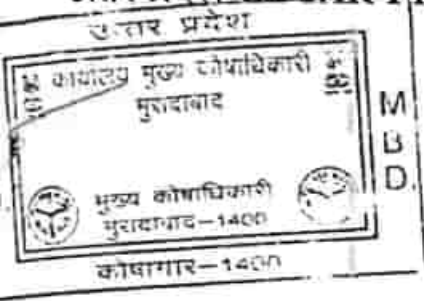 उत्तर प्रदेश
कार्यालय मुख्य कोषाधिकारी
मुरादाबाद
M
B
D.
मुख्य कोषाधिकारी
मुरादाबाद-1400
कोषागार-1400